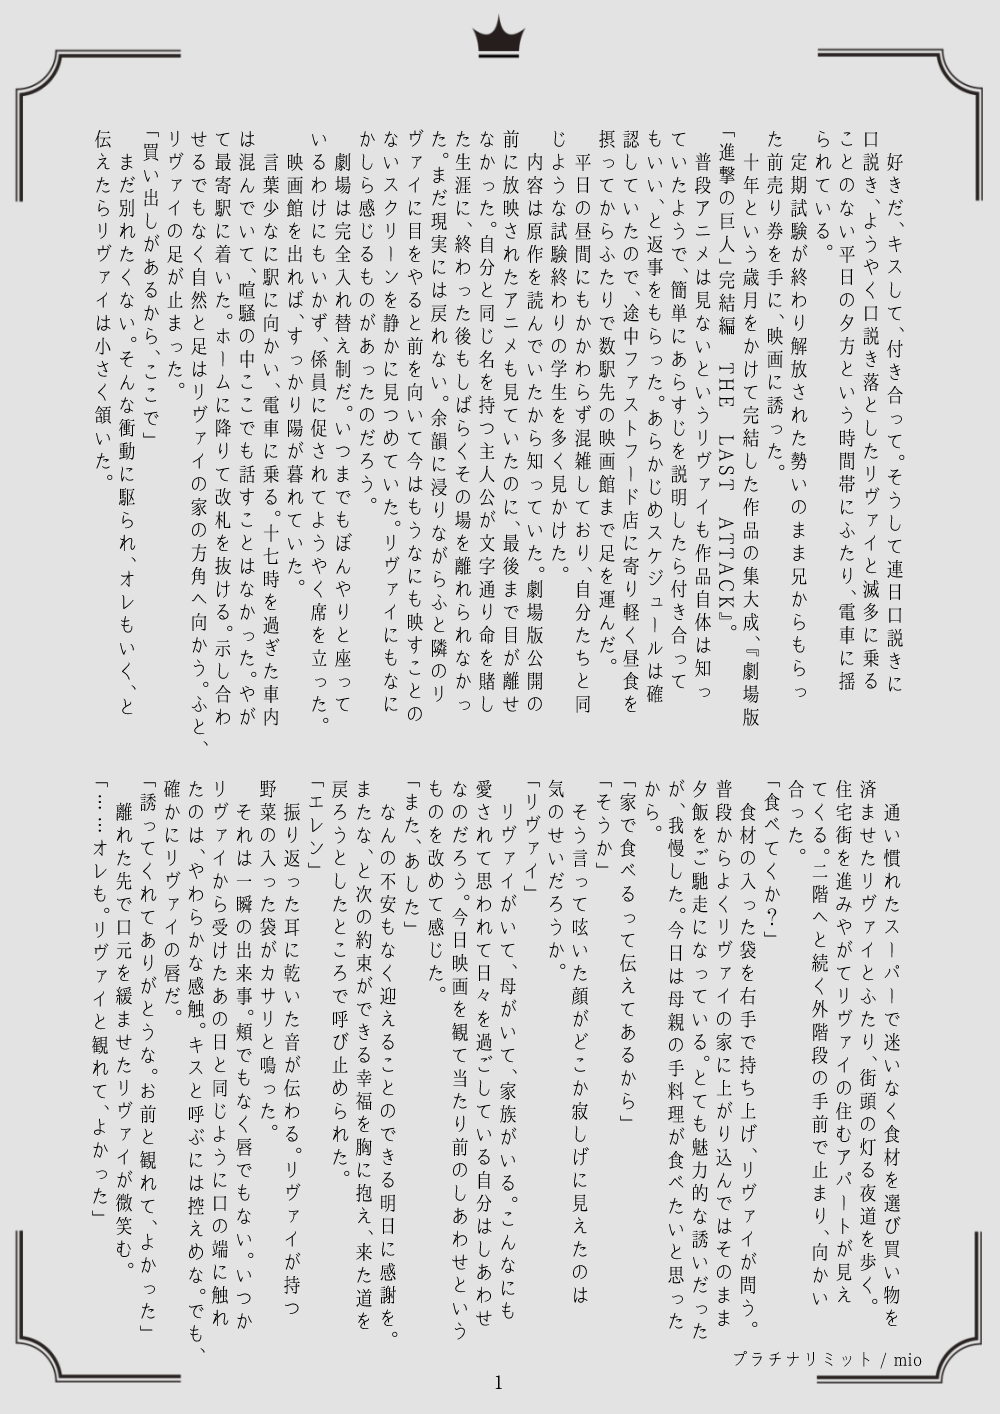 好きだ、キスして、付き合って。そうして連日口説きに
口説き、ようやく口説き落としたリヴァイと滅多に乗る
ことのない平日の夕方という時間帯にふたり、電車に揺
られている。
定期試験が終わり解放された勢いのまま兄からもらっ
た前売り券を手に、映画に誘った。
十年という歳月をかけて完結した作品の集大成、『劇場版
「進撃の巨人」完結編　THE　LAST　ATTACK』。
普段アニメは見ないというリヴァイも作品自体は知っ
ていたようで、簡単にあらすじを説明したら付き合って
もいい、と返事をもらった。あらかじめスケジュールは確
認していたので、途中ファストフード店に寄り軽く昼食を
摂ってからふたりで数駅先の映画館まで足を運んだ。
平日の昼間にもかかわらず混雑しており、自分たちと同
じような試験終わりの学生を多く見かけた。
内容は原作を読んでいたから知っていた。劇場版公開の
前に放映されたアニメも見ていたのに、最後まで目が離せ
なかった。自分と同じ名を持つ主人公が文字通り命を賭し
た生涯に、終わった後もしばらくその場を離れられなかっ
た。まだ現実には戻れない。余韻に浸りながらふと隣のリ
ヴァイに目をやると前を向いて今はもうなにも映すことの
ないスクリーンを静かに見つめていた。リヴァイにもなに
かしら感じるものがあったのだろう。
劇場は完全入れ替え制だ。いつまでもぼんやりと座って
いるわけにもいかず、係員に促されてようやく席を立った。
映画館を出れば、すっかり陽が暮れていた。
言葉少なに駅に向かい、電車に乗る。十七時を過ぎた車内
は混んでいて、喧騒の中ここでも話すことはなかった。やが
て最寄駅に着いた。ホームに降りて改札を抜ける。示し合わ
せるでもなく自然と足はリヴァイの家の方角へ向かう。ふと、
リヴァイの足が止まった。
「買い出しがあるから、ここで」
まだ別れたくない。そんな衝動に駆られ、オレもいく、と
伝えたらリヴァイは小さく頷いた。
通い慣れたスーパーで迷いなく食材を選び買い物を
済ませたリヴァイとふたり、街頭の灯る夜道を歩く。
住宅街を進みやがてリヴァイの住むアパートが見え
てくる。二階へと続く外階段の手前で止まり、向かい
合った。
「食べてくか？」
食材の入った袋を右手で持ち上げ、リヴァイが問う。
普段からよくリヴァイの家に上がり込んではそのまま
夕飯をご馳走になっている。とても魅力的な誘いだった
が、我慢した。今日は母親の手料理が食べたいと思った
から。
「家で食べるって伝えてあるから」
「そうか」
そう言って呟いた顔がどこか寂しげに見えたのは
気のせいだろうか。
「リヴァイ」
リヴァイがいて、母がいて、家族がいる。こんなにも
愛されて思われて日々を過ごしている自分はしあわせ
なのだろう。今日映画を観て当たり前のしあわせという
ものを改めて感じた。
「また、あした」
なんの不安もなく迎えることのできる明日に感謝を。
またな、と次の約束ができる幸福を胸に抱え、来た道を
戻ろうとしたところで呼び止められた。
「エレン」
振り返った耳に乾いた音が伝わる。リヴァイが持つ
野菜の入った袋がカサリと鳴った。
それは一瞬の出来事。頬でもなく唇でもない。いつか
リヴァイから受けたあの日と同じように口の端に触れ
たのは、やわらかな感触。キスと呼ぶには控えめな。でも、
確かにリヴァイの唇だ。
「誘ってくれてありがとうな。お前と観れて、よかった」
離れた先で口元を緩ませたリヴァイが微笑む。
「……オレも。リヴァイと観れて、よかった」
プラチナリミット / mio
1